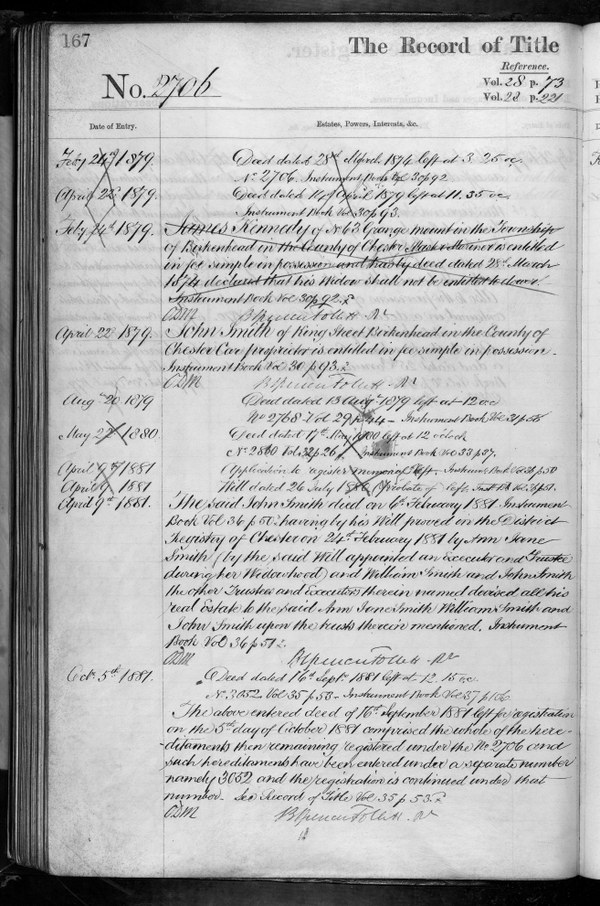 167
The Record of Title
Reference.
No. 2706
Vol. 28 p. 73
Vol. 28 p. 221
Date of Entry.
Estates, Powers, Interests, &c.
Feby 24th 1879. Deed dated 28th March 1874 left at 3.25 oc
No 2706. Instrument Book Vol 30 p 92
April 22d 1879. Deed dated April 1879 left at 11.35 oc
Instrument Book Vol 30 p 93.
Feby 24th 1879. James Kennedy of No 63 Grange mount in the Township
of Birkenhead in the County of Chester Master Mariner is entitled
in fee simple in possession and has by deed dated 28th March
1874 declared that his Widow shall not be entitled to dower.
Instrument Book Vol 30 p 92.
ODM B Spencer Follett Rr
April 22 1879. John Smith of King Street Birkenhead in the County of
Chester Car proprietor is entitled in fee simple in possession.
Instrument Book Vol 30 p 93.
ODM B Spencer Follett Rr
Augt 20 1879 Deed dated 13 Augt 1879 left at 12 oc
No 2768 Vol 29 p 44 - Instrument Book Vol 31 p 56
May 1880. Deed dated 17th left at 12 o'clock
No 2860 Vol 32 p 26 Instrument Book Vol 33 p 37.
April 9th 1881 Application to register left - Instrum Book Vol 36 p 50
April 9th 1881 Will dated 26 July (Probate of) left, Inst Bk Vol 36 p 51.
April 9th 1881. The said John Smith died on 6th February 1881 Instrument
Book Vol 36 p 50 having by his Will proved in the District
Registry of Chester on 24th February 1881 by Ann Jane
Smith (by the said Will appointed an Executor and Trustee
during her Widowhood) and William Smith and John Smith
the other Trustees and Executors therein named devised all his
real Estate to the said Ann Jane Smith William Smith and
John Smith upon the trusts therein mentioned. Instrument
Book Vol 36 p 51.
ODM B Spencer Follett Rr
Octr 5th 1881. Deed dated 16th Septr 1881 left at 12.15 oc
No 3052 Vol 35 p 53 - Instrument Book Vol 37 p 106
The above entered deed of 16th September 1881 left for registration
on the 5th day of October 1881 comprised the whole of the here-
ditaments then remaining registered under the No 2706 and
such hereditaments have been entered under a separate number
namely 3052 and the registration is continued under that
number. See Record of Title Vol 35 p 53.
ODM B Spencer Follett Rr